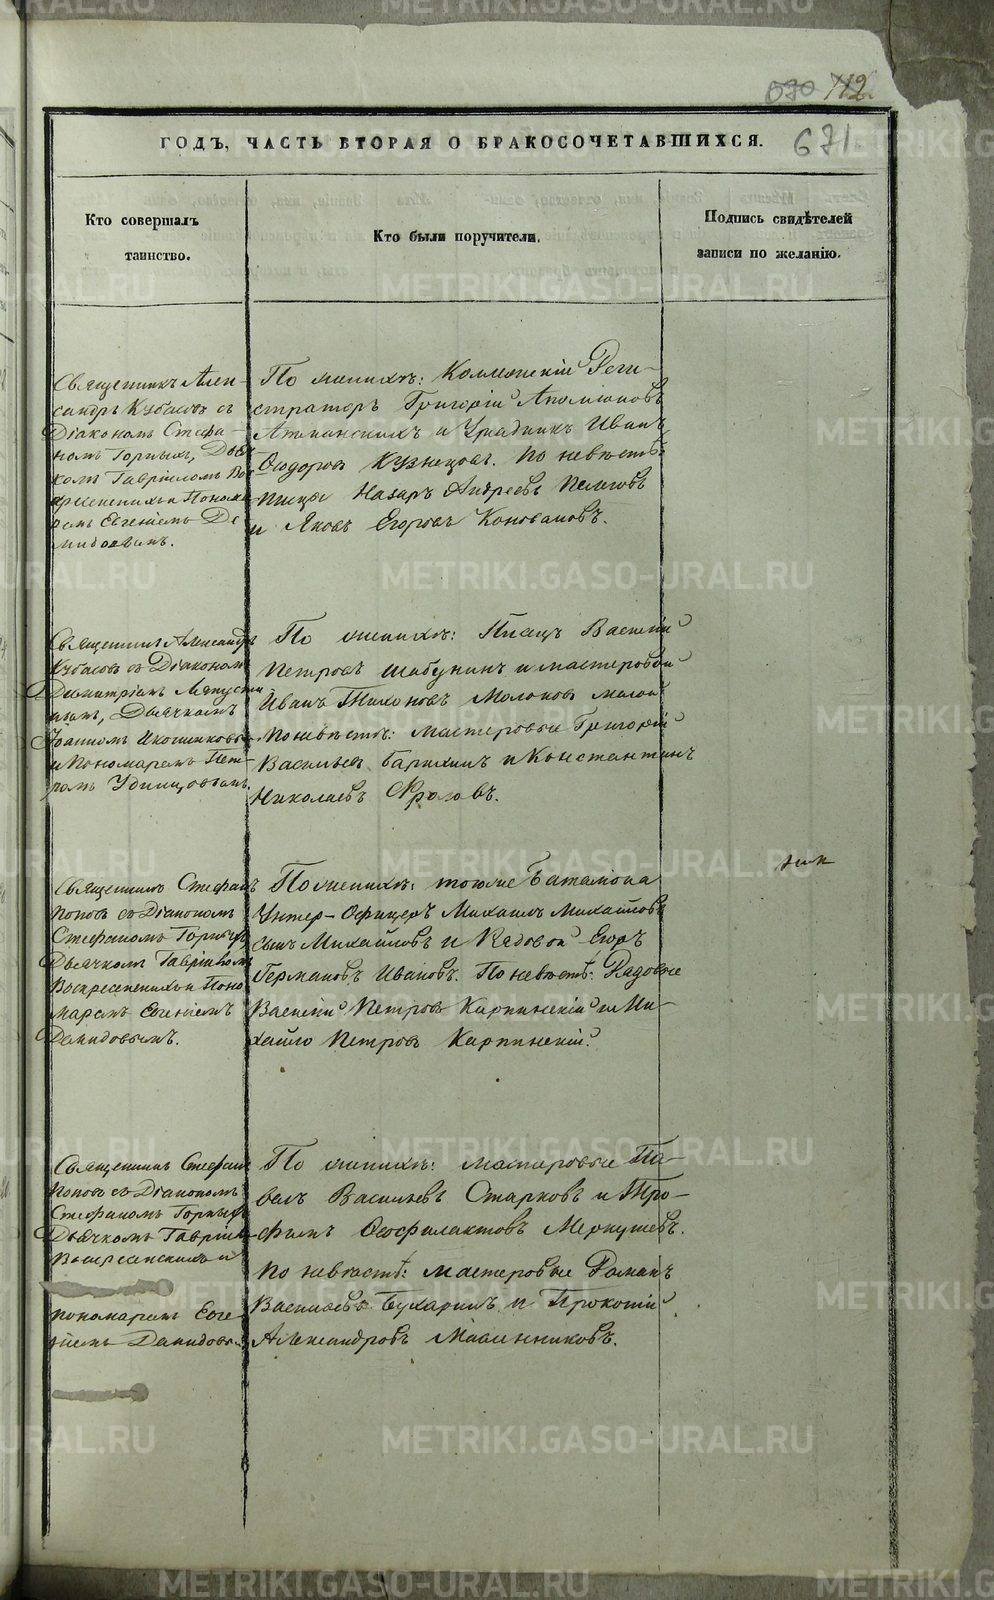 METRIKI.GASO-URAL.RU
570 712
ГОДЪ, ЧАСТЬ ВТОРАЯ О БРАКОСОЧЕТАВШИХСЯ. 671
Кто совершалъ
таинство.
Кто были поручители.
Подпись свидѣтелей
записи по желанію.
Священникъ Алек-
сандръ Кубасовъ съ
Діакономъ Стефа-
номъ Горныхъ,
Гавріиломъ Во-
скресенскихъ и Поном
ремъ Евгеніемъ Де
мидовымъ.
По женихѣ: Коллежскій Реги-
страторъ Григорій
и Урядникъ Иванъ
Ѳеодоровъ Кузнецовъ. По невѣстѣ:
писцы Назаръ Андреевъ
и Яковъ Егоровъ Коноваловъ.
Священникъ Александръ
Кубасовъ съ Діакономъ
Димитріемъ
Дьячкомъ
Іоанномъ Иконниковы
и Пономаремъ Пет-
ромъ Удинцовымъ.
По женихѣ: Писецъ Василій
Петровъ Шабунинъ и мастеровой
Иванъ Тихоновъ Молоковъ малой
По невѣстѣ: мастеровые Григорій
Васильевъ и Константинъ
Николаевъ Фроловъ.
Священникъ Стефанъ
Поповъ съ Діакономъ
Стефаномъ Горныхъ,
Дьячкомъ Гавріиломъ
Воскресенскихъ и Поно
маремъ Евгеніемъ
Демидовымъ.
По женихѣ: тогоже Баталіона
Унтер-Офицеръ Михаилъ Михайловъ
сынъ Михайловъ и Рядовой Егоръ
Германовъ Ивановъ. По невѣстѣ: Рядовые
Василій Петровъ Карпинскій и Ми-
хайло Петровъ Карпинскій.
Священникъ Стефанъ
Поповъ съ Діакономъ
Стефаномъ Горныхъ
Дьячкомъ Гавріил
Воскресенскимъ и
пономаремъ Евге
ніемъ Демидовы
По женихѣ: мастеровые Па-
велъ Васильевъ Старковъ и Тро-
фимъ Ѳеофилактовъ Меркушевъ.
По невѣстѣ: мастеровые Романъ
Васильевъ Бухаринъ и Прокопій
Александровъ Масленниковъ.